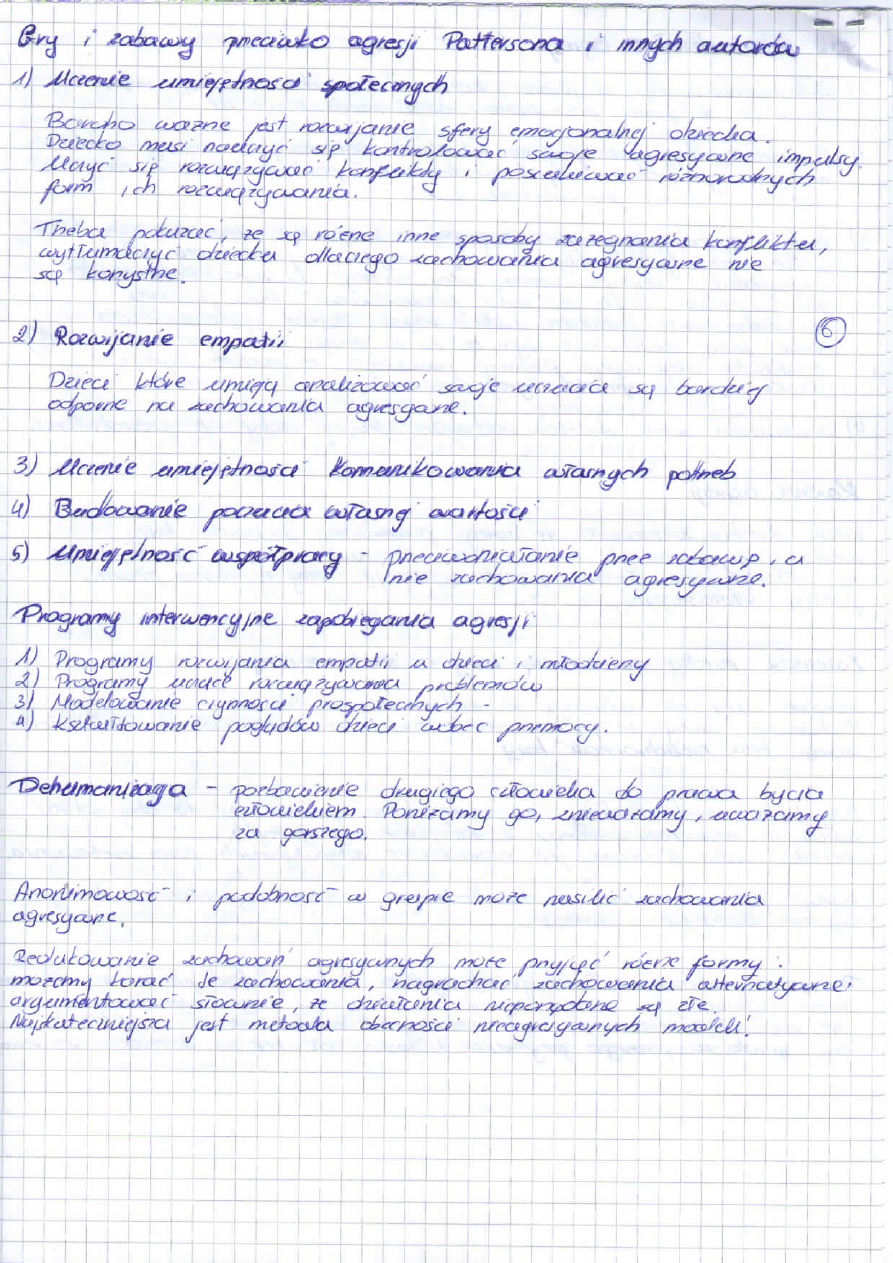 Gry i zabawy przeciwko agresji Pattersona i innych autorów
1) Uczenie umiejętności społecznych
Bardzo ważne jest rozwijanie sfery emocjonalnej dziecka.
Dziecko musi nauczyć się kontrolować swoje agresywne impulsy.
Uczyć się rozwiązywać konflikty i poszukiwać różnorodnych
form ich rozwiązywania.
Trzeba pokazać, że są różne inne sposoby zażegnania konfliktu,
wytłumaczyć dziecku dlaczego zachowania agresywne nie
są korzystne.
2) Rozwijanie empatii
6
Dzieci które umieją analizować swoje uczucia są bardziej
odporne na zachowania agresywne.
3) Uczenie umiejętności komunikowania własnych potrzeb
4) Budowanie poczucia własnej wartości
5) Umiejętność współpracy - przeciwdziałanie przez zabawę, a
nie zachowania agresywne.
Programy interwencyjne zapobiegania agresji
1) Programy rozwijania empatii u dzieci i młodzieży
2) Programy uczące rozwiązywania problemów
3) Modelowanie czynności prospołecznych -
4) Kształtowanie poglądów dzieci wobec przemocy.
Dehumanizacja - pozbawienie drugiego człowieka do prawa bycia
człowiekiem. Poniżamy go, znieważamy, uważamy
za gorszego.
Anonimowość i podobność w grupie może nasilić zachowania
agresywne.
Redukowanie zachowań agresywnych może przyjąć różne formy:
możemy karać złe zachowania, nagradzać zachowania alternatywne,
argumentować słownie, że działania niepożądane są złe.
Najskuteczniejsza jest metoda obecności nieagresywnych modeli!